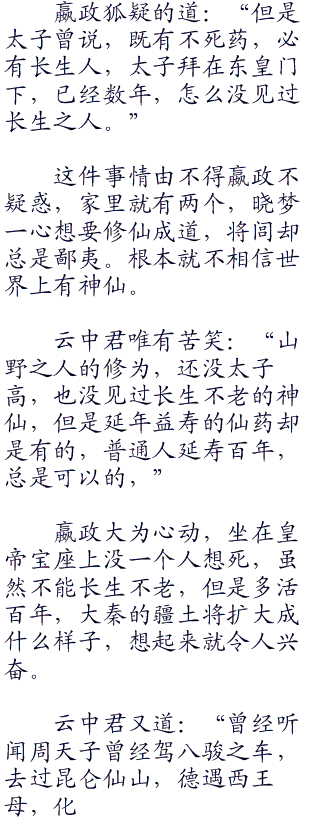 嬴政狐疑的道：“但是
太子曾说，既有不死药，必
有长生人，太子拜在东皇门
下，已经数年，怎么没见过
长生之人。”
这件事情由不得嬴政不
疑惑，家里就有两个，晓梦
一心想要修仙成道，将闾却
总是鄙夷。根本就不相信世
界上有神仙。
云中君唯有苦笑：“山
野之人的修为，还没太子
高，也没见过长生不老的神
仙，但是延年益寿的仙药却
是有的，普通人延寿百年，
总是可以的，”
嬴政大为心动，坐在皇
帝宝座上没一个人想死，虽
然不能长生不老，但是多活
百年，大秦的疆土将扩大成
什么样子，想起来就令人兴
奋。
云中君又道：“曾经听
闻周天子曾经驾八骏之车，
去过昆仑仙山，德遇西王
母，化